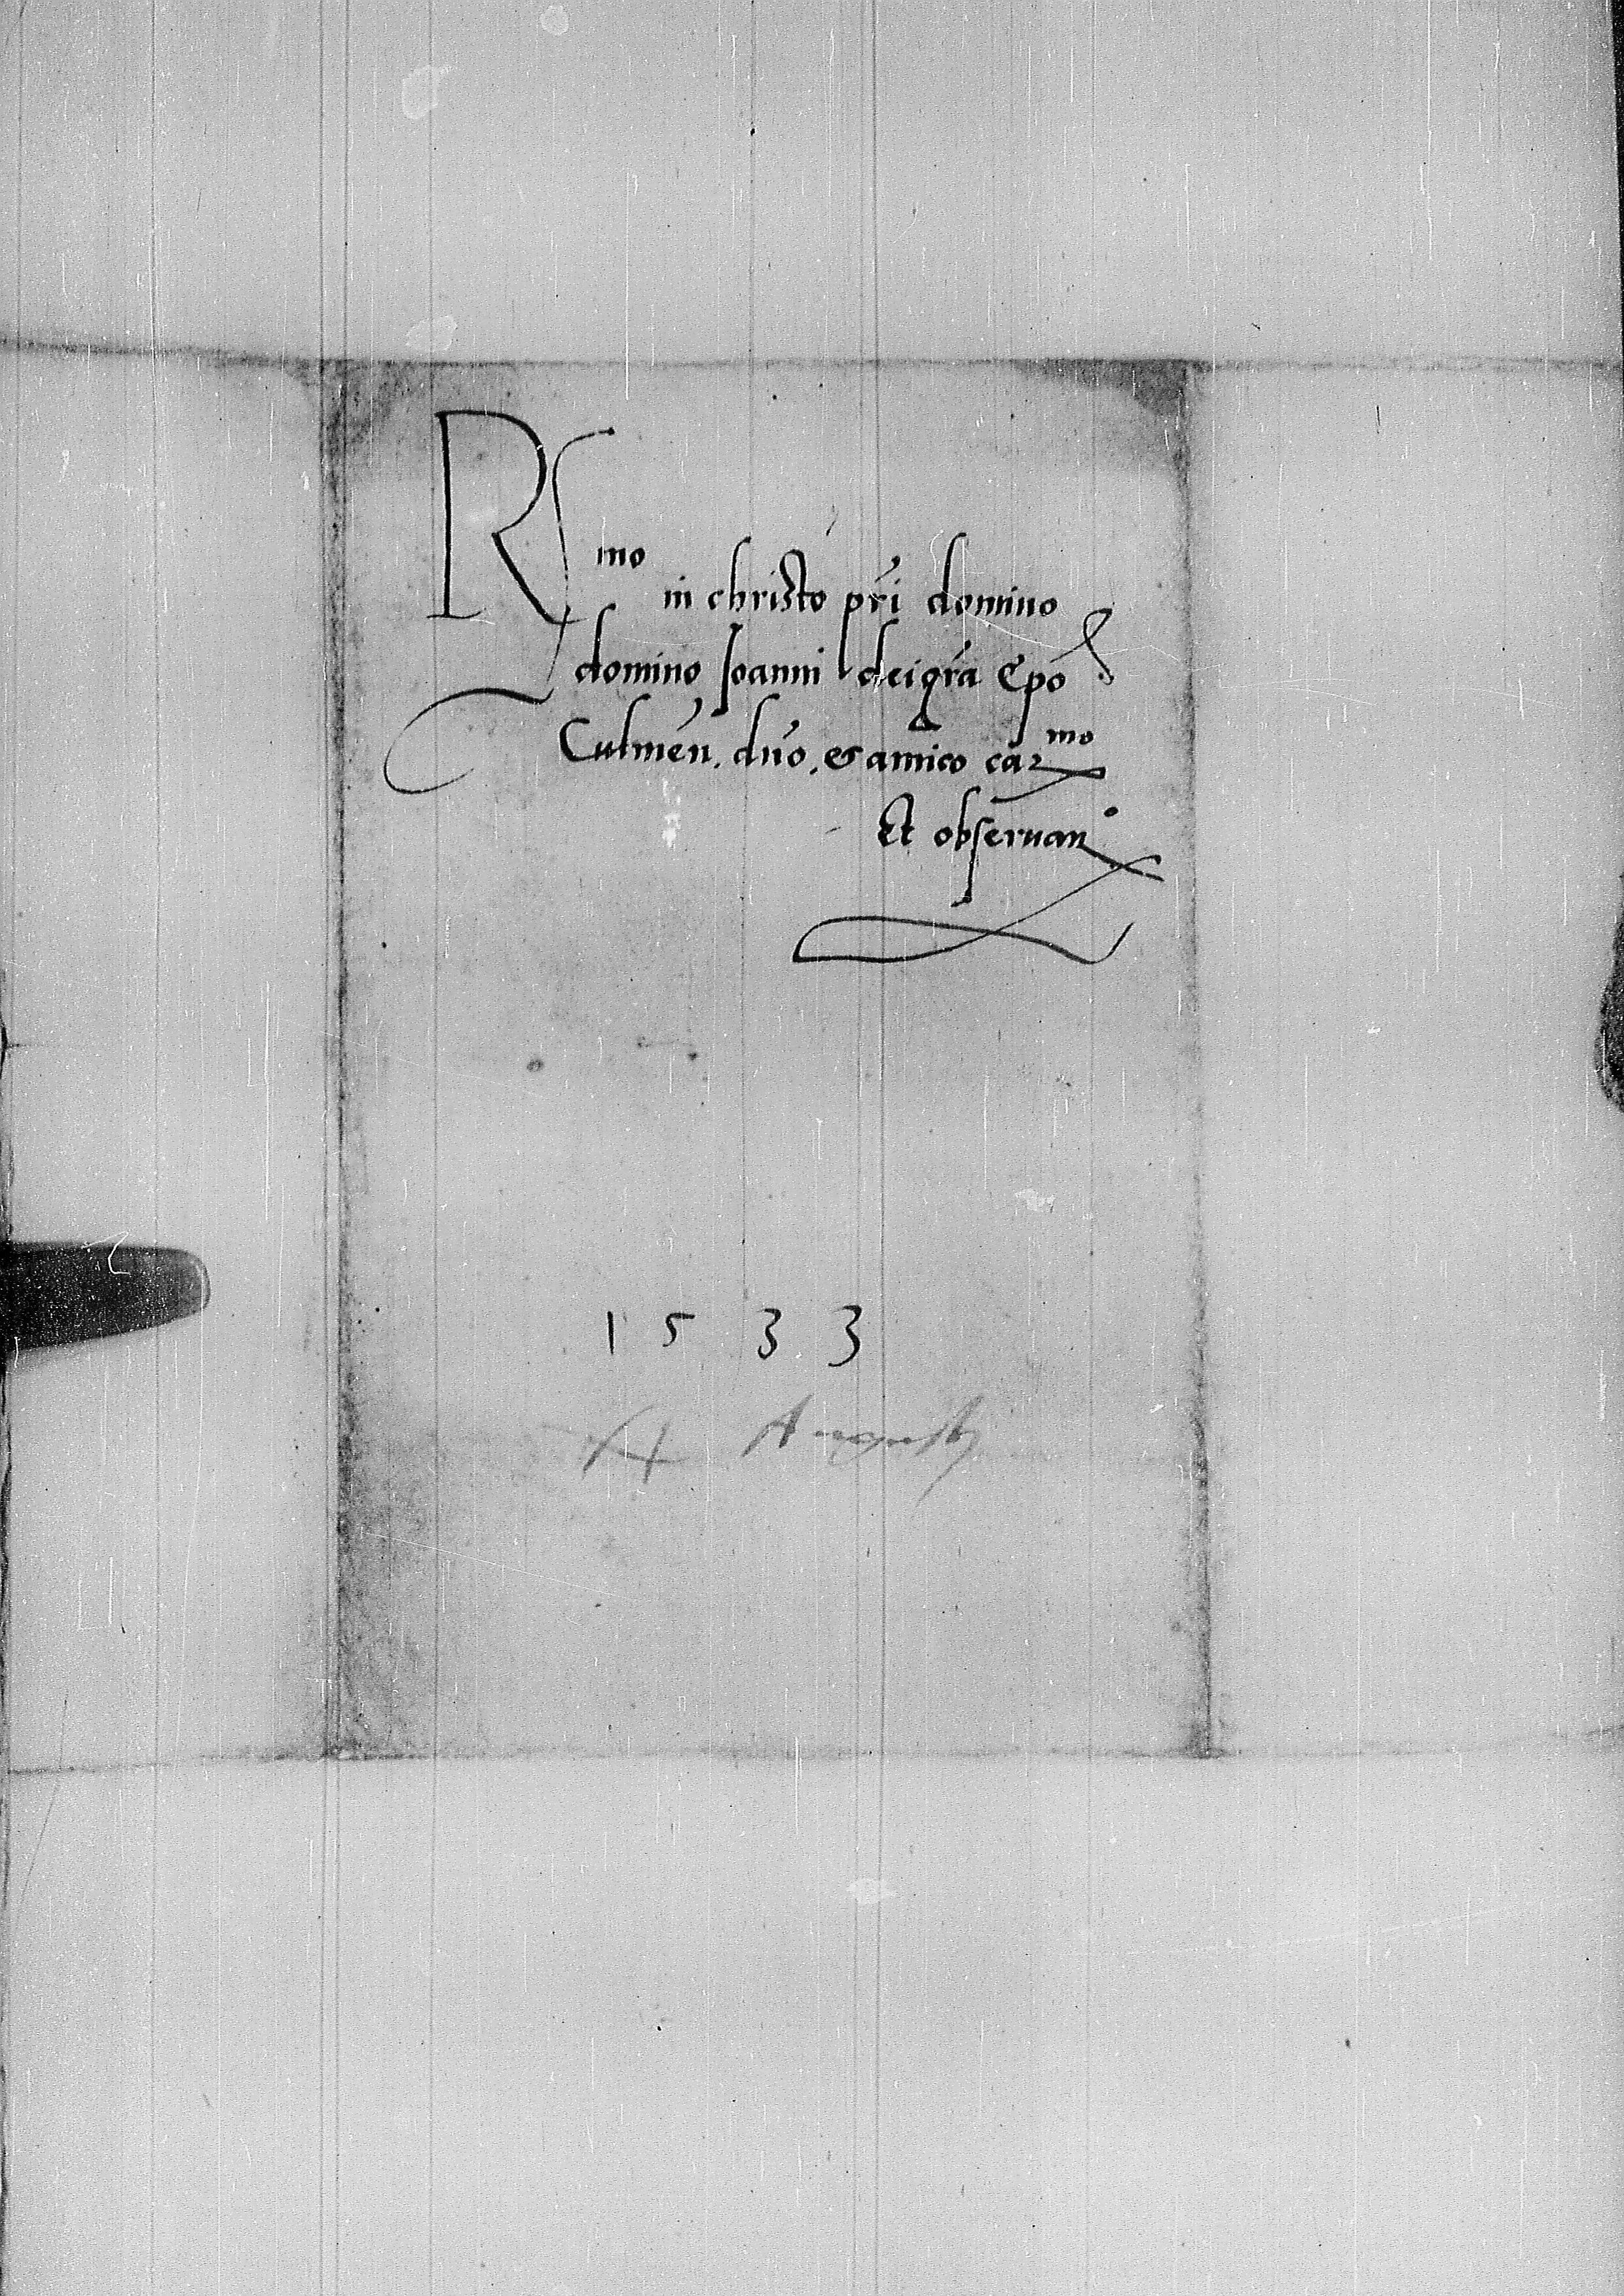 R^mo in christo pr̄i domino
domino Ioanni dei gr̄a Ep̄o
Culmeñ. dn̄o. et amico car^mo
Et obseruan^o
1533
Augusti